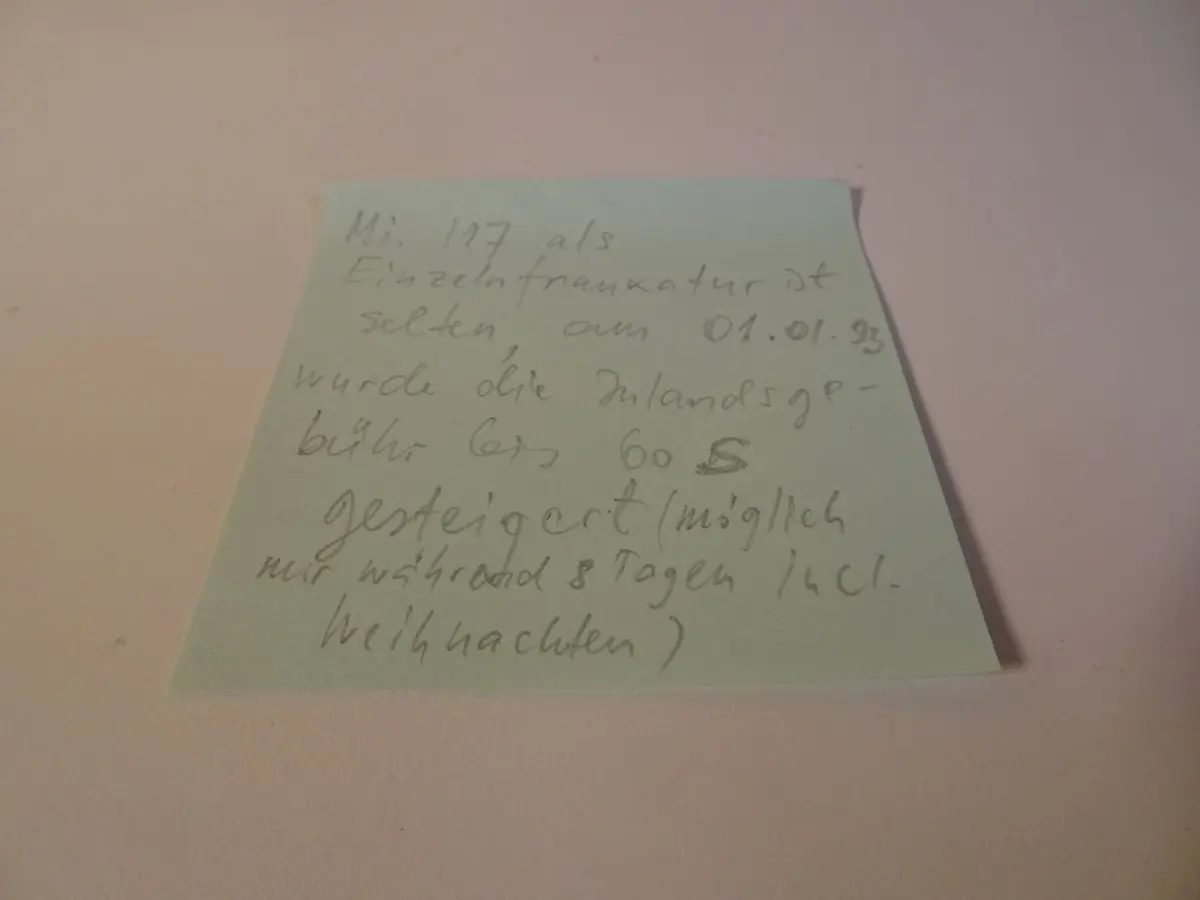 Mi. 117 als
Einzelnfrankatur ist
selten, am 01.01.93
wurde die Inlandsge-
bühr bis 60 S
gesteigert (möglich
nur während 8 Tagen incl.
Weihnachten)